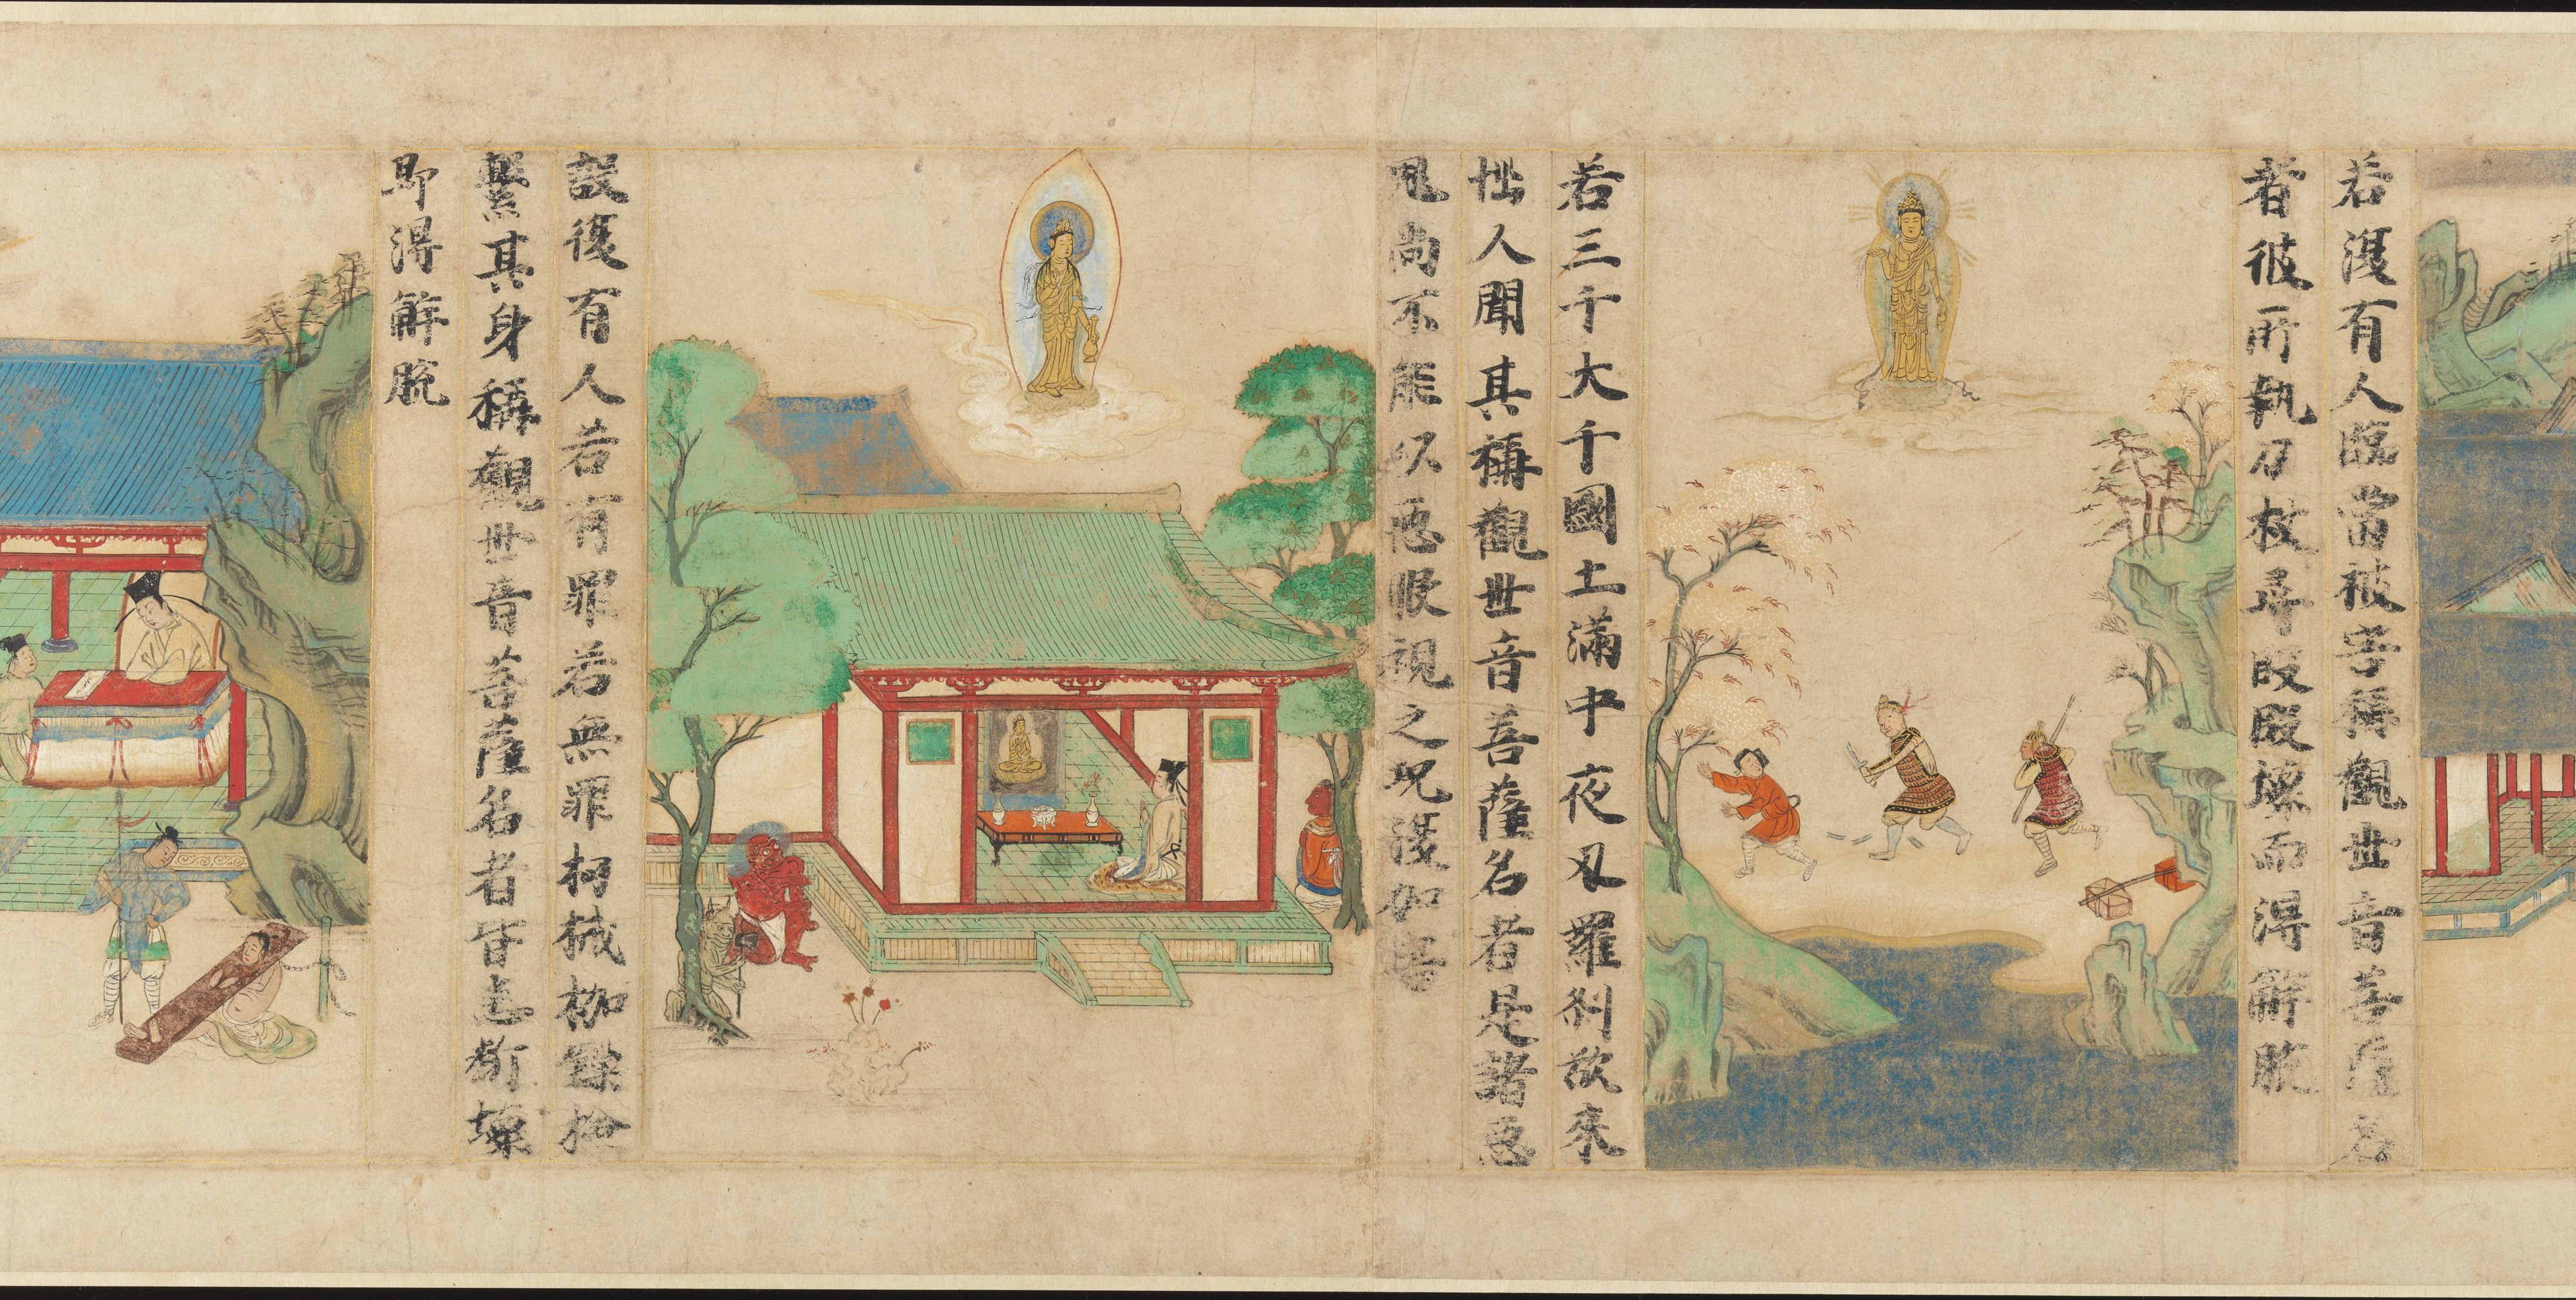 若復有人臨當被害稱觀世音菩薩名
者彼所執刀杖尋段段壞而得解脫
若三千大千國土滿中夜叉羅刹欲來
惱人聞其稱觀世音菩薩名者是諸惡
鬼尚不能以惡眼視之況復加害
設復有人若有罪若無罪杻械枷鏁撿
繫其身稱觀世音菩薩名者皆悉斷壞
即得解脫